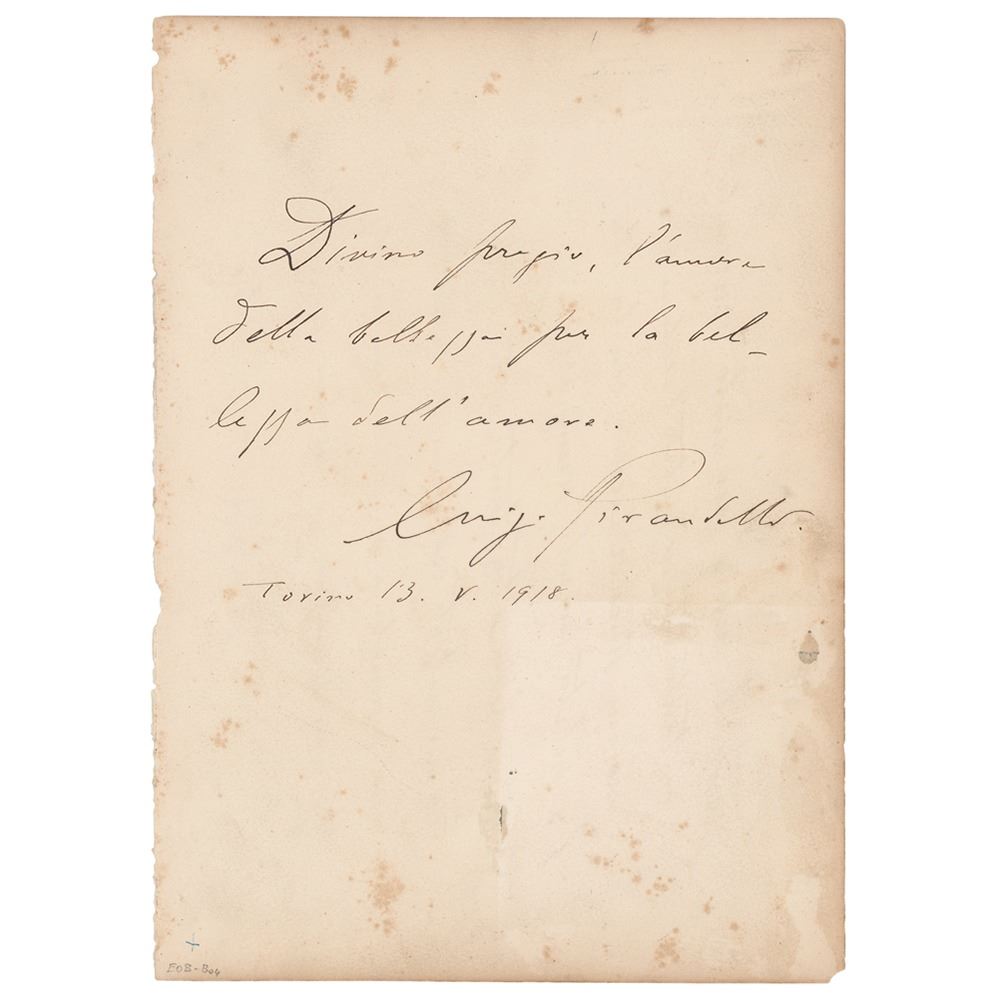 Divino pregio, l'amore
della bellezza per la bel-
lezza dell'amore.
Luigi Pirandello.
Torino 13. V. 1918.
EOB-B04